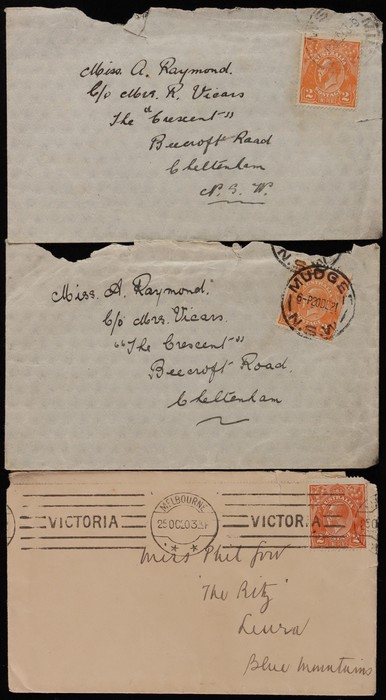 Miss. A. Raymond.
C/o Mrs. R. Vicars
The "Crescent"
Beecroft Road
Cheltenham
N. S. W.
AUSTRALIA
2 2
N.S.W
MUDGEE
N.S.W
Miss. A. Raymond.
C/o Mrs. Vicars.
"The Crescent"
Beecroft Road.
Cheltenham
MELBOURNE
VICTORIA
VICTORIA
AUSTRALIA
Miss Phil
'The Ritz'
Leura
Blue Mountains